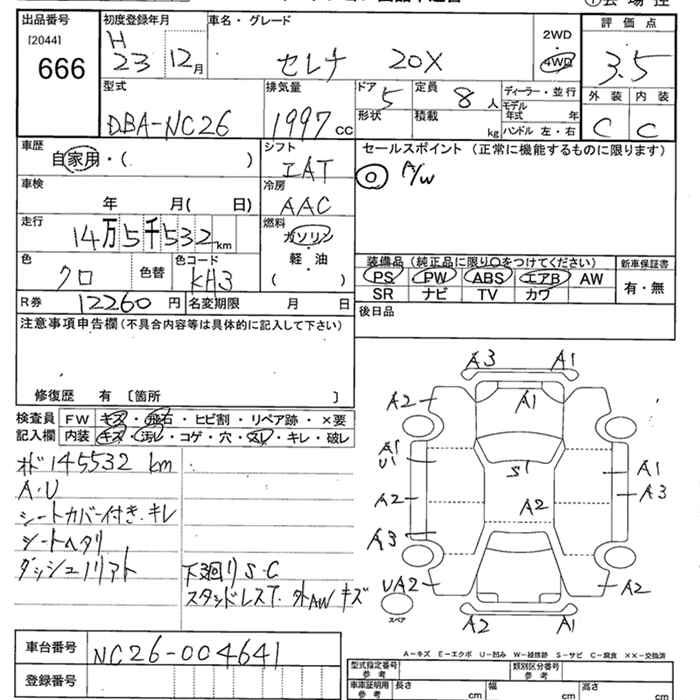 出品番号 初度登録年月 車名・グレード 2WD 評価点
[2044] H 23年 12月 セレナ 20X 4WD 3.5
666
型式 排気量 ドア 5 定員 8人 ディーラー・並行 外装 内装
DBA-NC26 1997cc 形状 積載 kg モデル年式 年 C C
ハンドル 左・右
車歴 シフト セールスポイント(正常に機能するものに限ります)
自家用・( ) IAT A/W
車検 冷房
年 月( 日) AAC
走行 燃料
14万5千532km ガソリン
軽・油
( )
装備品(純正品に限り○をつけてください) 新車保証書
色 クロ 色替 色コード KH3 PS PW ABS エアB AW 有・無
SR ナビ TV カワ
R券 12260円 名変期限 月 日 後日品
注意事項申告欄(不具合内容等は具体的に記入して下さい)
修復歴 有 〔箇所 〕
検査員 FW キズ・飛石・ヒビ割・リペア跡・×要
記入欄 内装 キズ・汚レ・コゲ・穴・スレ・キレ・破レ
オド 145532 km
A・U
シートカバー付き・キレ
シートヘタリ
ダッシュリアト
下廻りS・C
スタッドレスT・外AW キズ
A3 A1
A2 A1 A2
A1
U1 S1 A1
A2 A2 A3
A3
UA2 A2
スペア A2 A1
A-キズ E-エクボ U-凹み W-補修跡 S-サビ C-腐食 ××-交換済
車台番号 NC26-004641
登録番号
型式指定番号 参考 類別区分番号 参考
車庫証明用 参考 長さ cm 幅 cm 高さ cm